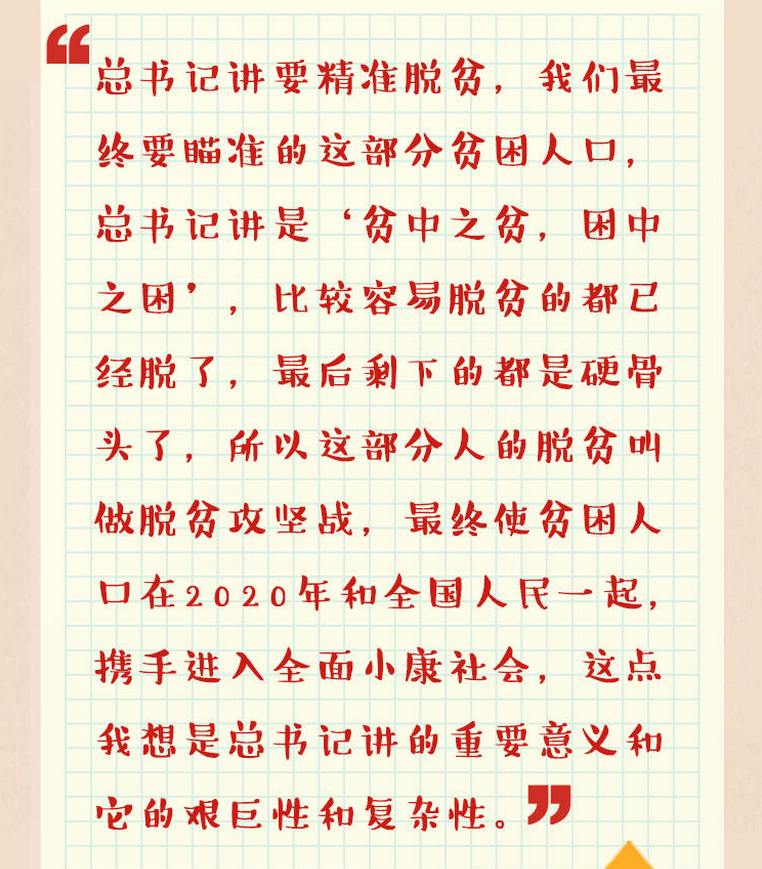 “总书记讲要精准脱贫，我们最
终要瞄准的这部分贫困人口，
总书记讲是‘贫中之贫，困中
之困’，比较容易脱贫的都已
经脱了，最后剩下的都是硬骨
头了，所以这部分人的脱贫叫
做脱贫攻坚战，最终使贫困人
口在2020年和全国人民一起，
携手进入全面小康社会，这点
我想是总书记讲的重要意义和
它的艰巨性和复杂性。”